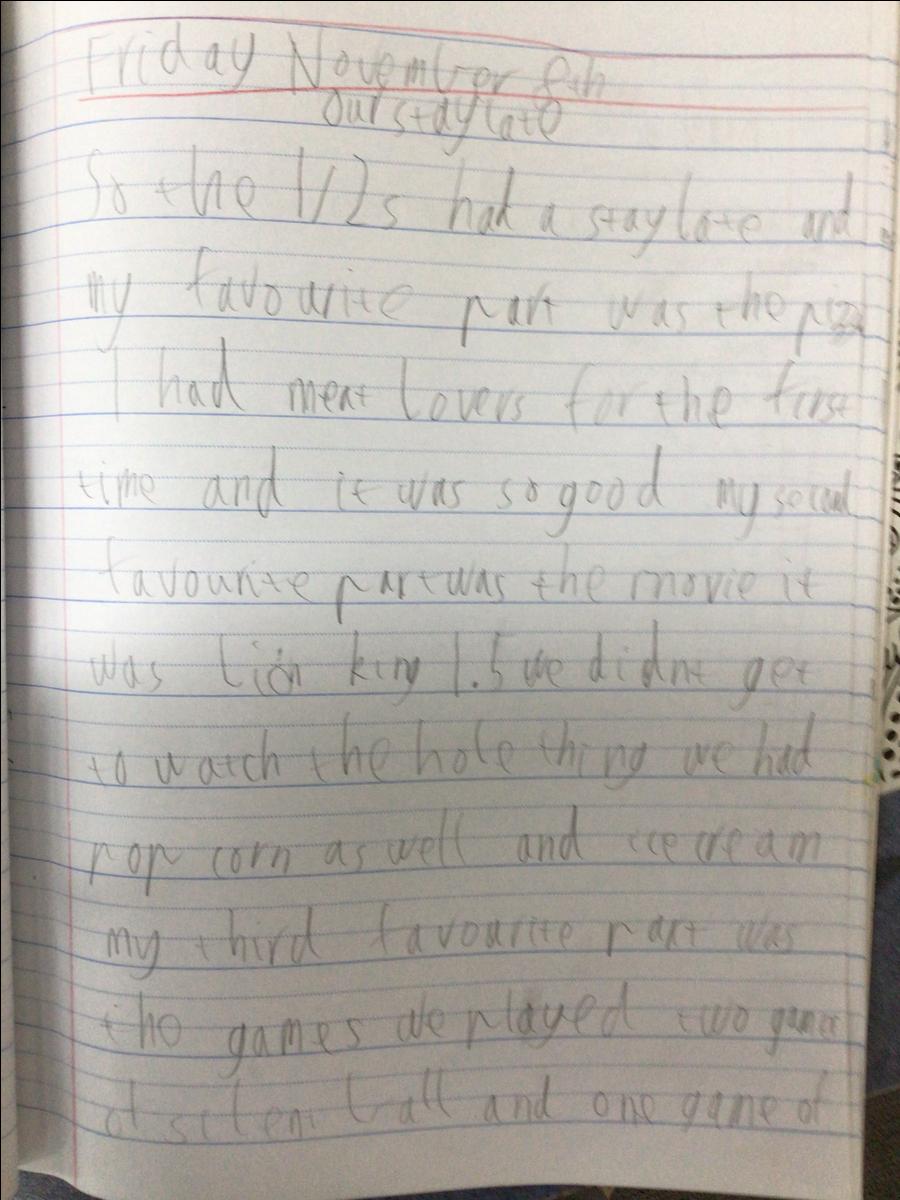 Friday November 8th
our staylate
So the 1/2s had a staylate and
my favourite part was the pizza
I had meat lovers for the first
time and it was so good my second
favourite part was the movie it
was Lion king 1.5 we didnt get
to watch the hole thing we had
pop corn as well and icecream
my third favourite part was
the games we played two games
of silent ball and one game of